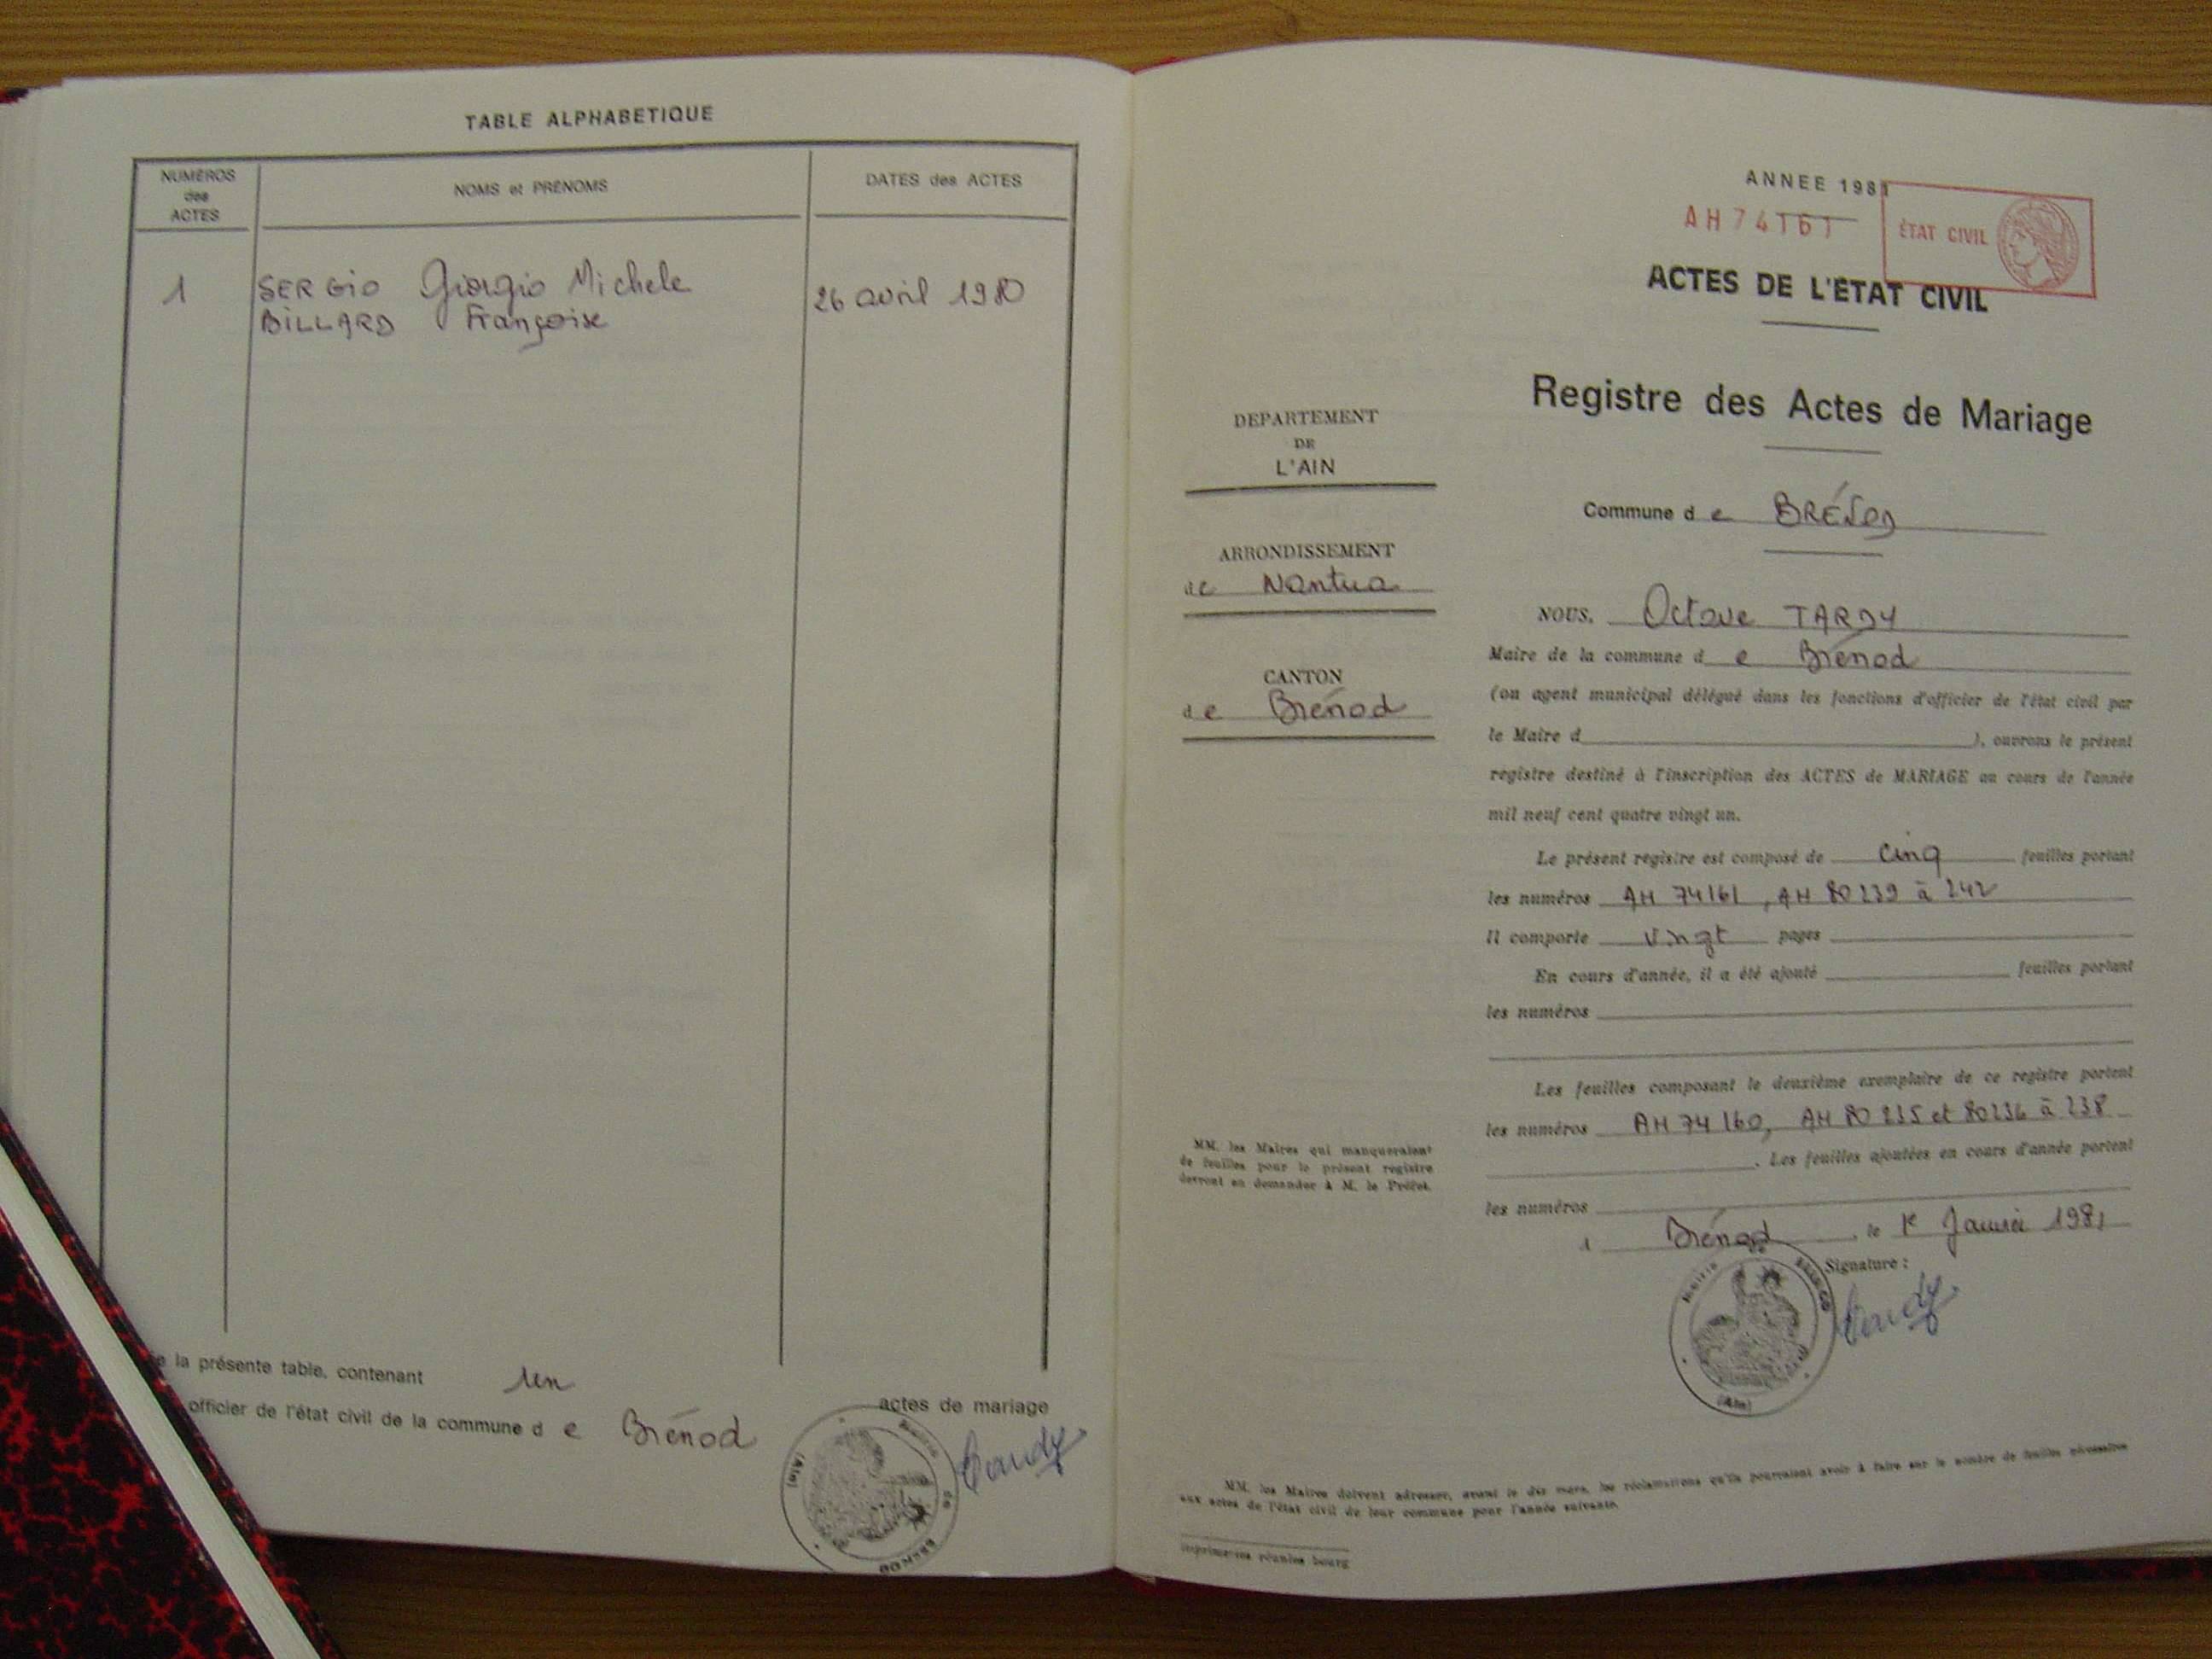 TABLE ALPHABETIQUE
NUMÉROS
des
ACTES
NOMS et PRÉNOMS
DATES des ACTES
1
SERGIO Giorgio Michele
BILLARD Françoise
26 avril 1980
la présente table, contenant un
actes de mariage
officier de l'état civil de la commune d e Brénod
ANNEE 1981
AH 74161
ÉTAT CIVIL
ACTES DE L'ÉTAT CIVIL
Registre des Actes de Mariage
DEPARTEMENT
DE
L'AIN
Commune d e BRÉNOD
ARRONDISSEMENT
de Nantua
CANTON
de Brénod
NOUS, Octave TARDY
Maire de la commune d e Brénod
(ou agent municipal délégué dans les fonctions d'officier de l'état civil par
le Maire d ), ouvrons le présent
registre destiné à l'inscription des ACTES de MARIAGE au cours de l'année
mil neuf cent quatre vingt un.
Le présent registre est composé de cinq feuilles portant
les numéros AH 74161, AH 80239 à 242
Il comporte vingt pages
En cours d'année, il a été ajouté feuilles portant
les numéros
Les feuilles composant le deuxième exemplaire de ce registre portent
les numéros AH 74160, AH 80235 et 80236 à 238
. Les feuilles ajoutées en cours d'année portent
les numéros
MM. les Maires qui manqueraient
de feuilles pour le présent registre
devront en demander à M. le Préfet.
Brénod, le 1er Janvier 1981
Signature :
Tardy
Mairie de BRENOD
(Ain)
Tardy
Mairie de BRENOD
(Ain)
MM. les Maires doivent adresser, avant le dix mars, les réclamations qu'ils pourraient avoir à faire sur le nombre de feuilles nécessaires
aux actes de l'état civil de leur commune pour l'année suivante.
imprimeries réunies bourg